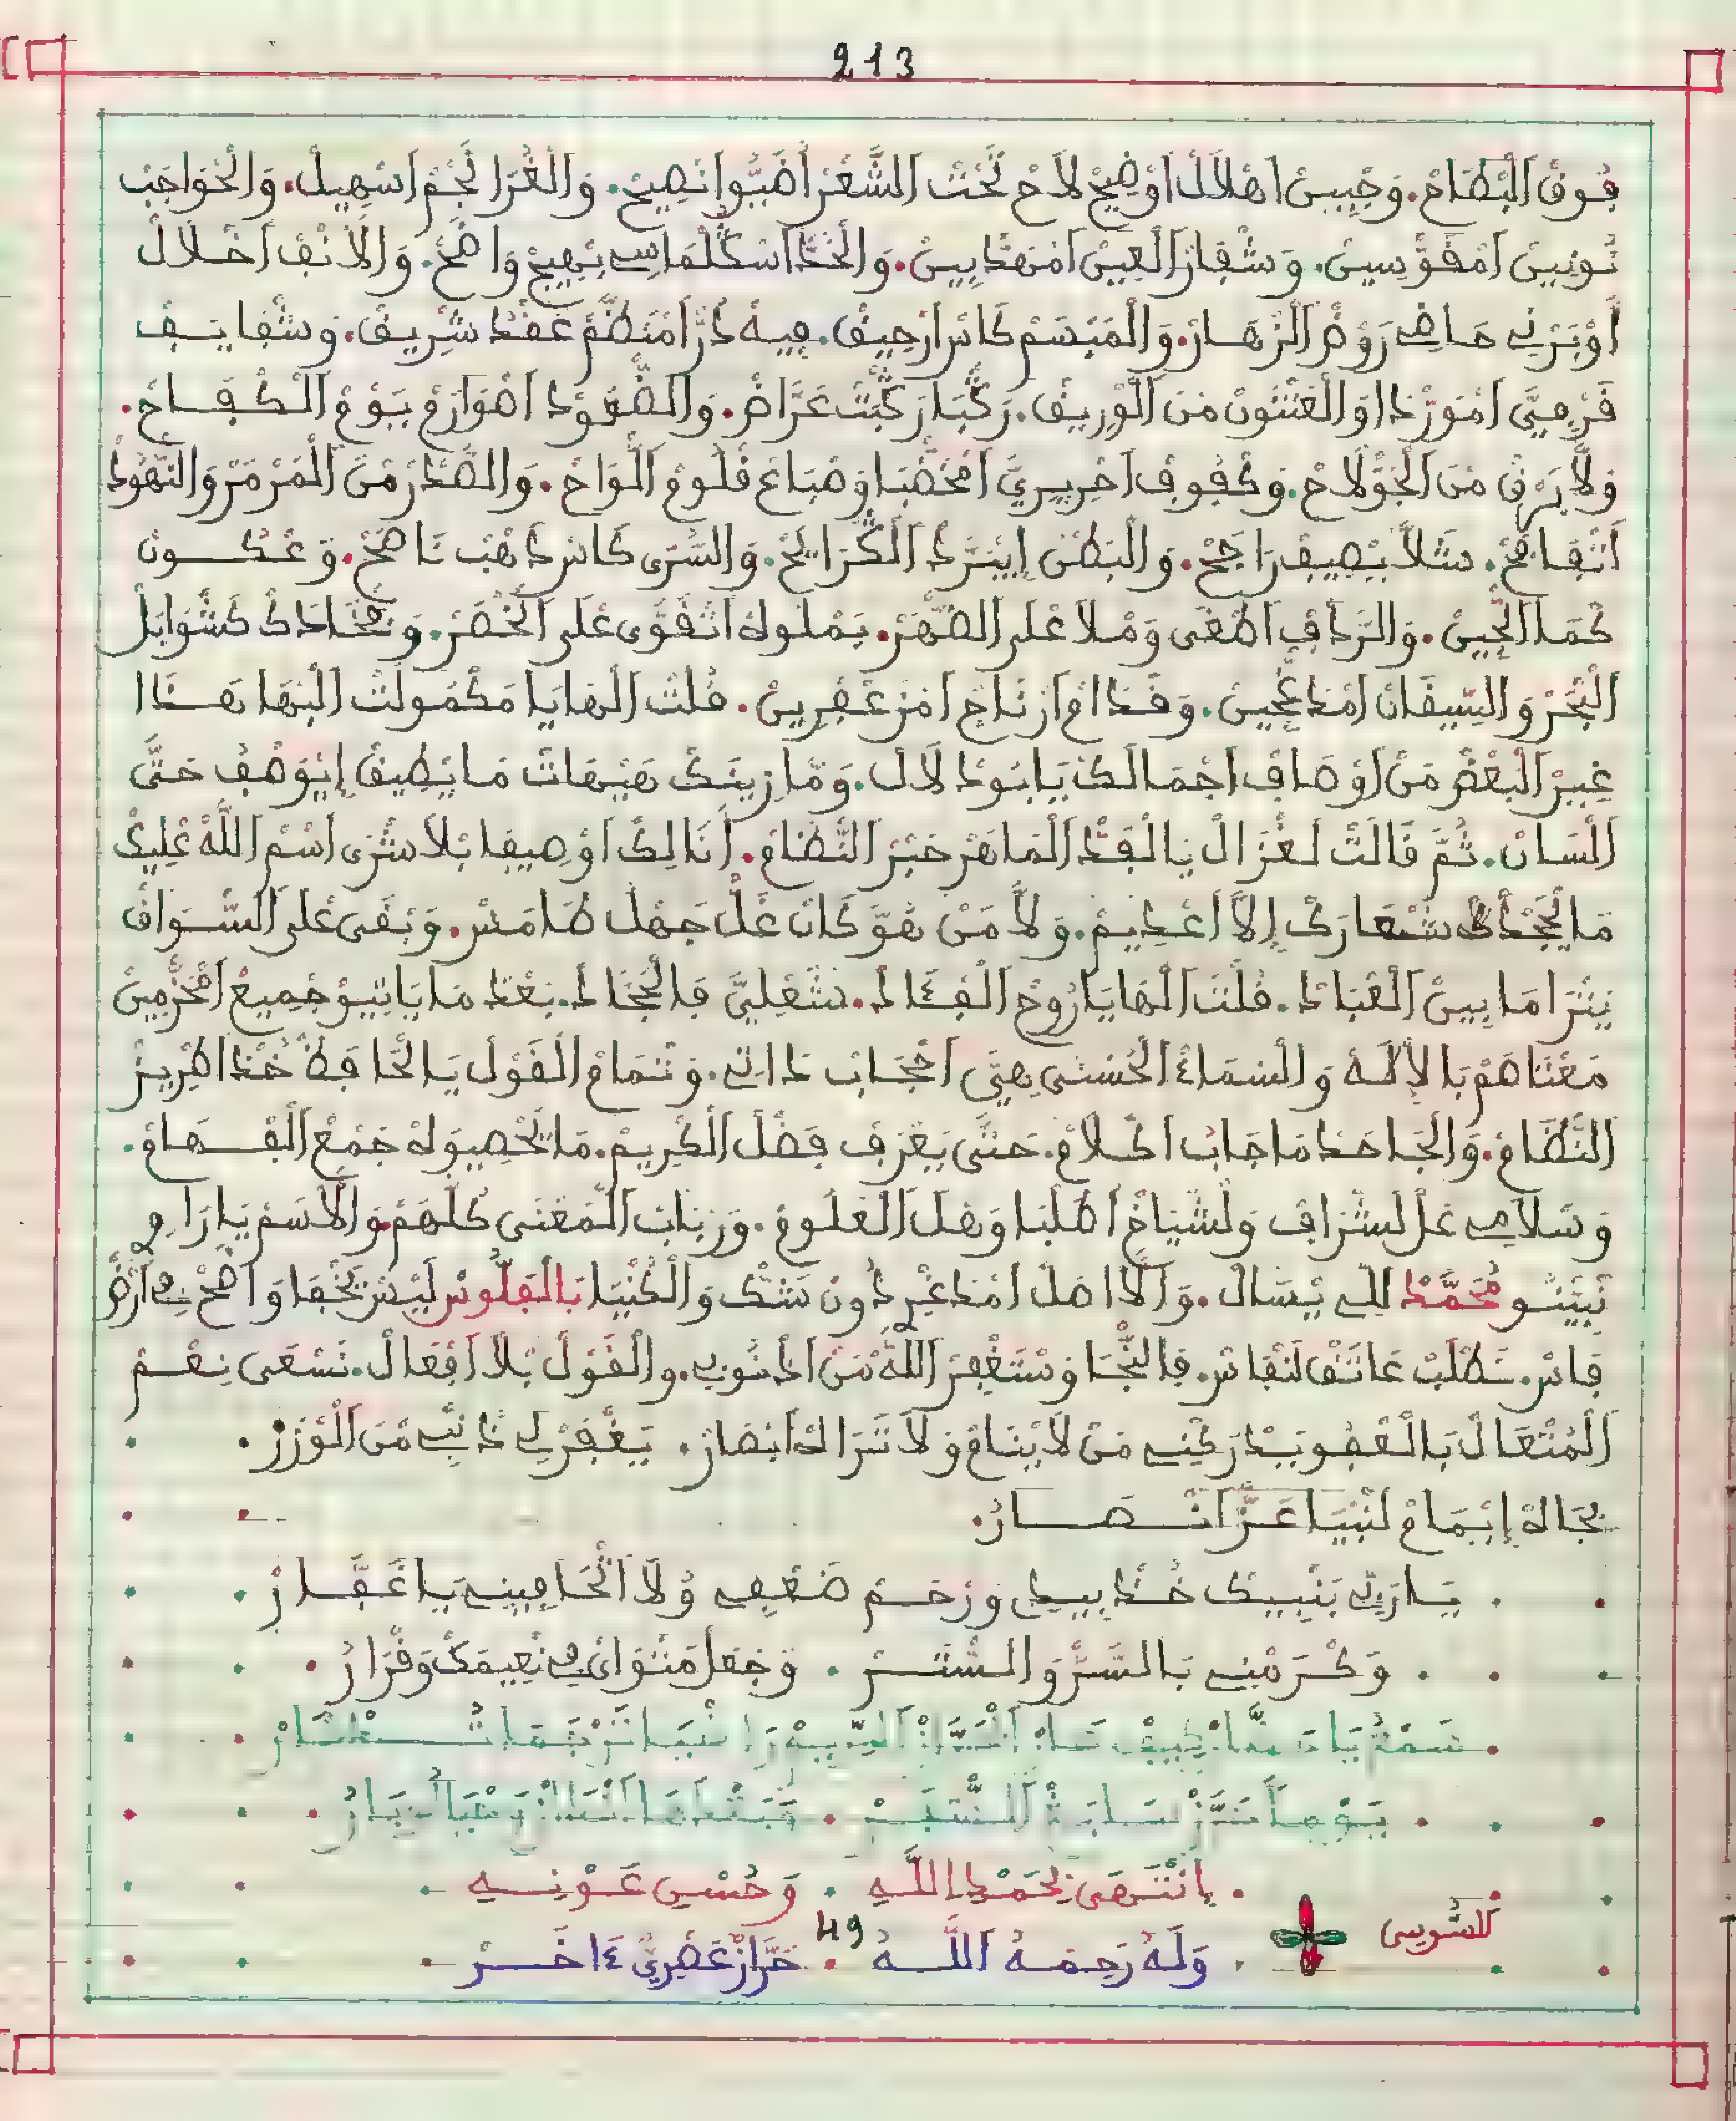 213
فُوقْ الْبْطَاحْ. وَجْبِينْ اهْلاَلْ اوْضِيحْ لاَحْ تَحْتْ الشَّعْرْ اضَيُّو انْصِيحْ. وَالْغُرَّا نَجْمْ اسْهِيلْ. وَالْحْوَاجَبْ
نُونِينْ امْقَوّْسِينْ. وَشْفَارْ الْعِينْ امْهَدّْبِينْ. وَالْخَدّْ اسْكَلْمَاسِي بْهِيجْ وَاضَحْ. وَالاَنْفْ اخْلاَلْ
اوْبَرْنِي حَاضِي رَوْضْ الزْهَارْ. وَالْمَبْسَمْ كَاسْ ارْحِيقْ. فِيهْ دُرّْ امْنَظَّمْ عَقْدْ شْرِيقْ. وَشْفَايَفْ
قَرْمِيَّ امْوَرّْدَا وَالْعَثْنُونْ مْنَ الْوْرِيقْ. رَكْبَا رَكْبَتْ عَرَّاضْ. وَالضْعُودْ اصْوَارَمْ يَوْمْ الْكْفَاحْ.
وَلاَّ بَرْقْ مْنَ الْجَوّْ لاَحْ. وَكْفُوفْ احْرِيرِيَّ امْخَضّْبَا وَصْبَاعْ قْلُومْ الْوَاحْ. وَالصّْدَرْ مْنَ الْمَرْمَرْ وَالنّْهُودْ
اتْفَافَحْ. شَلاَّ يْصِيفْ رَاجَحْ. وَالْبْطَنْ إِيْبَرَّدْ الْكْرَايَحْ. وَالسُّرَّى كَاسْ دْهَبْ نَاصَحْ. وَعْكُــونْ
كَمَا الْجِينْ. وَالرّْدَافْ اطْغَى وَمْلاَ عْلَى الضّْهَرْ. بَمْلُوكْ اتْقَوَّى عْلَى الْخْصَرْ. وَفْخَادَكْ كَشْوَابَلْ
الْبْحَرْ وَالسِّيقَانْ امْدَمْجِينْ. وَقْدَامْ ارْتَاجْ امْزَعْفْرِينْ. قُلْتْ الْهَا يَا مَكْمُولَتْ الْبْهَا هَــدَا
غِيرْ الْبْعْضْ مَنْ اوْصَافْ اجْمَالَكْ يَا بُودْلاَلْ. وَمَّا زِينَكْ هَيْهَاتْ مَا يْطِيقْ إِيْوَصْفُ حَتَّى
الْسَانْ. ثُمَّ قَالَتْ لَغْزَالْ يَا لْفَدّْ الْمَاهَرْ حَبْرْ النّْظَامْ. أَنَا لِكْ اوْصِيفَا بْلاَ شْرَى اسْمْ اللَّهْ عْلِيكْ
مَا يَجْحَدْ شْعَارَكْ إِلاَّ اعْدِيمْ. وَلاَّ مَنْ هُوَّ كَانْ عَلْ جَهْلْ طَامَسْ. وَبْقَى عْلَى السّْوَاقْ
يَتْرَامَا بِينْ الْعْبَادْ. قُلْتْ الْهَا يَا رُوحْ الْفْؤَادْ. شَعْلِيَّ فَالْجْحَادْ. بَعْدْ مَا يَاتِيوْ جْمِيعْ امْحَزّْمِينْ
مَعْنَاهُمْ بَا لإِلَهْ وَالسْمَاءْ الْحُسْنَى هِيَّ احْجَابْ دَاتِي. وَتْمَامْ الْقَوْلْ يَا الْحَافَظْ خُدْ اطْرِيزْ
النّْظَامْ. وَالْجَاحَدْ مَا جَابْ اكْلاَمْ. حَتَّى يَعْرَفْ فَضْلْ الْكْرِيمْ. مَا يَحْصِيوَهْ جَمْعْ الْفْــهَامْ.
وَسْلاَمِي عَلْ لشْرَافْ وَلَشْيَاخْ اطْلْبَا وَهْلْ الْعْلُومْ. وَرْبَابْ الْمَعْنَى كُلّْهُمْ وَالاَسْمْ يَا رَاوِي
نْبَيّْنُــو مُحَمَّدْ لِلِّي يْسَالْ. وَالاَصْلْ امْدَغْرِي دُونْ شَكّْ وَالْكُنْيَا بَالْفَلُّوسْ لَيْسْ تَخْفَا وَاضَحْ فِي أَرْضْ
فَاسْ. نَطْلَبْ عَاتَقْ لَنْفَاسْ. فَالنّْجَا وَسْتَغْفِرْ اللَّهْ مْنَ الدُّنُوبِي. وَالْقَوْلْ بْلاَ افْعَالْ. نَسْعَى نِعْــمْ
الْمُتْعَالْ بَالْعْفُو يَدْرَكْنِي مَنْ لاَ يْنَامْ وَلاَ تْرَاهْ ابْصَارْ. يَغْفَرْ لِي ذَنْبِي مْنَ الْوْزَرْ.
بْجَاهْ إِيْمَامْ لَنْبْيَا عَزّْ انْــصَــارُ.
يَــا رَبِّي بَنْبِيكْ خُــدْ بِيدِي وَرْحَــمْ ضَعْفِي وُلاَ اتْحَافِينِي يَا غَفَّــارْ
وَكْــرَمْنِي بَالسَّرّْ وَالسّْتَــرْ . وَجْعَلْ مَثْوَايَ فِي نْعِيمَكْ وَقْرَارُ .
. إِنْتَــهَى بِحَمْدِ اللَّهِ . وَحُسْنِ عَــوْنِــهِ .
لَلسُّوسِي
49
. وَلَهُ رَحِمَهُ اللَّــهُ . حَرَّازْ عَصْرِيْ ءَاخَــرْ .